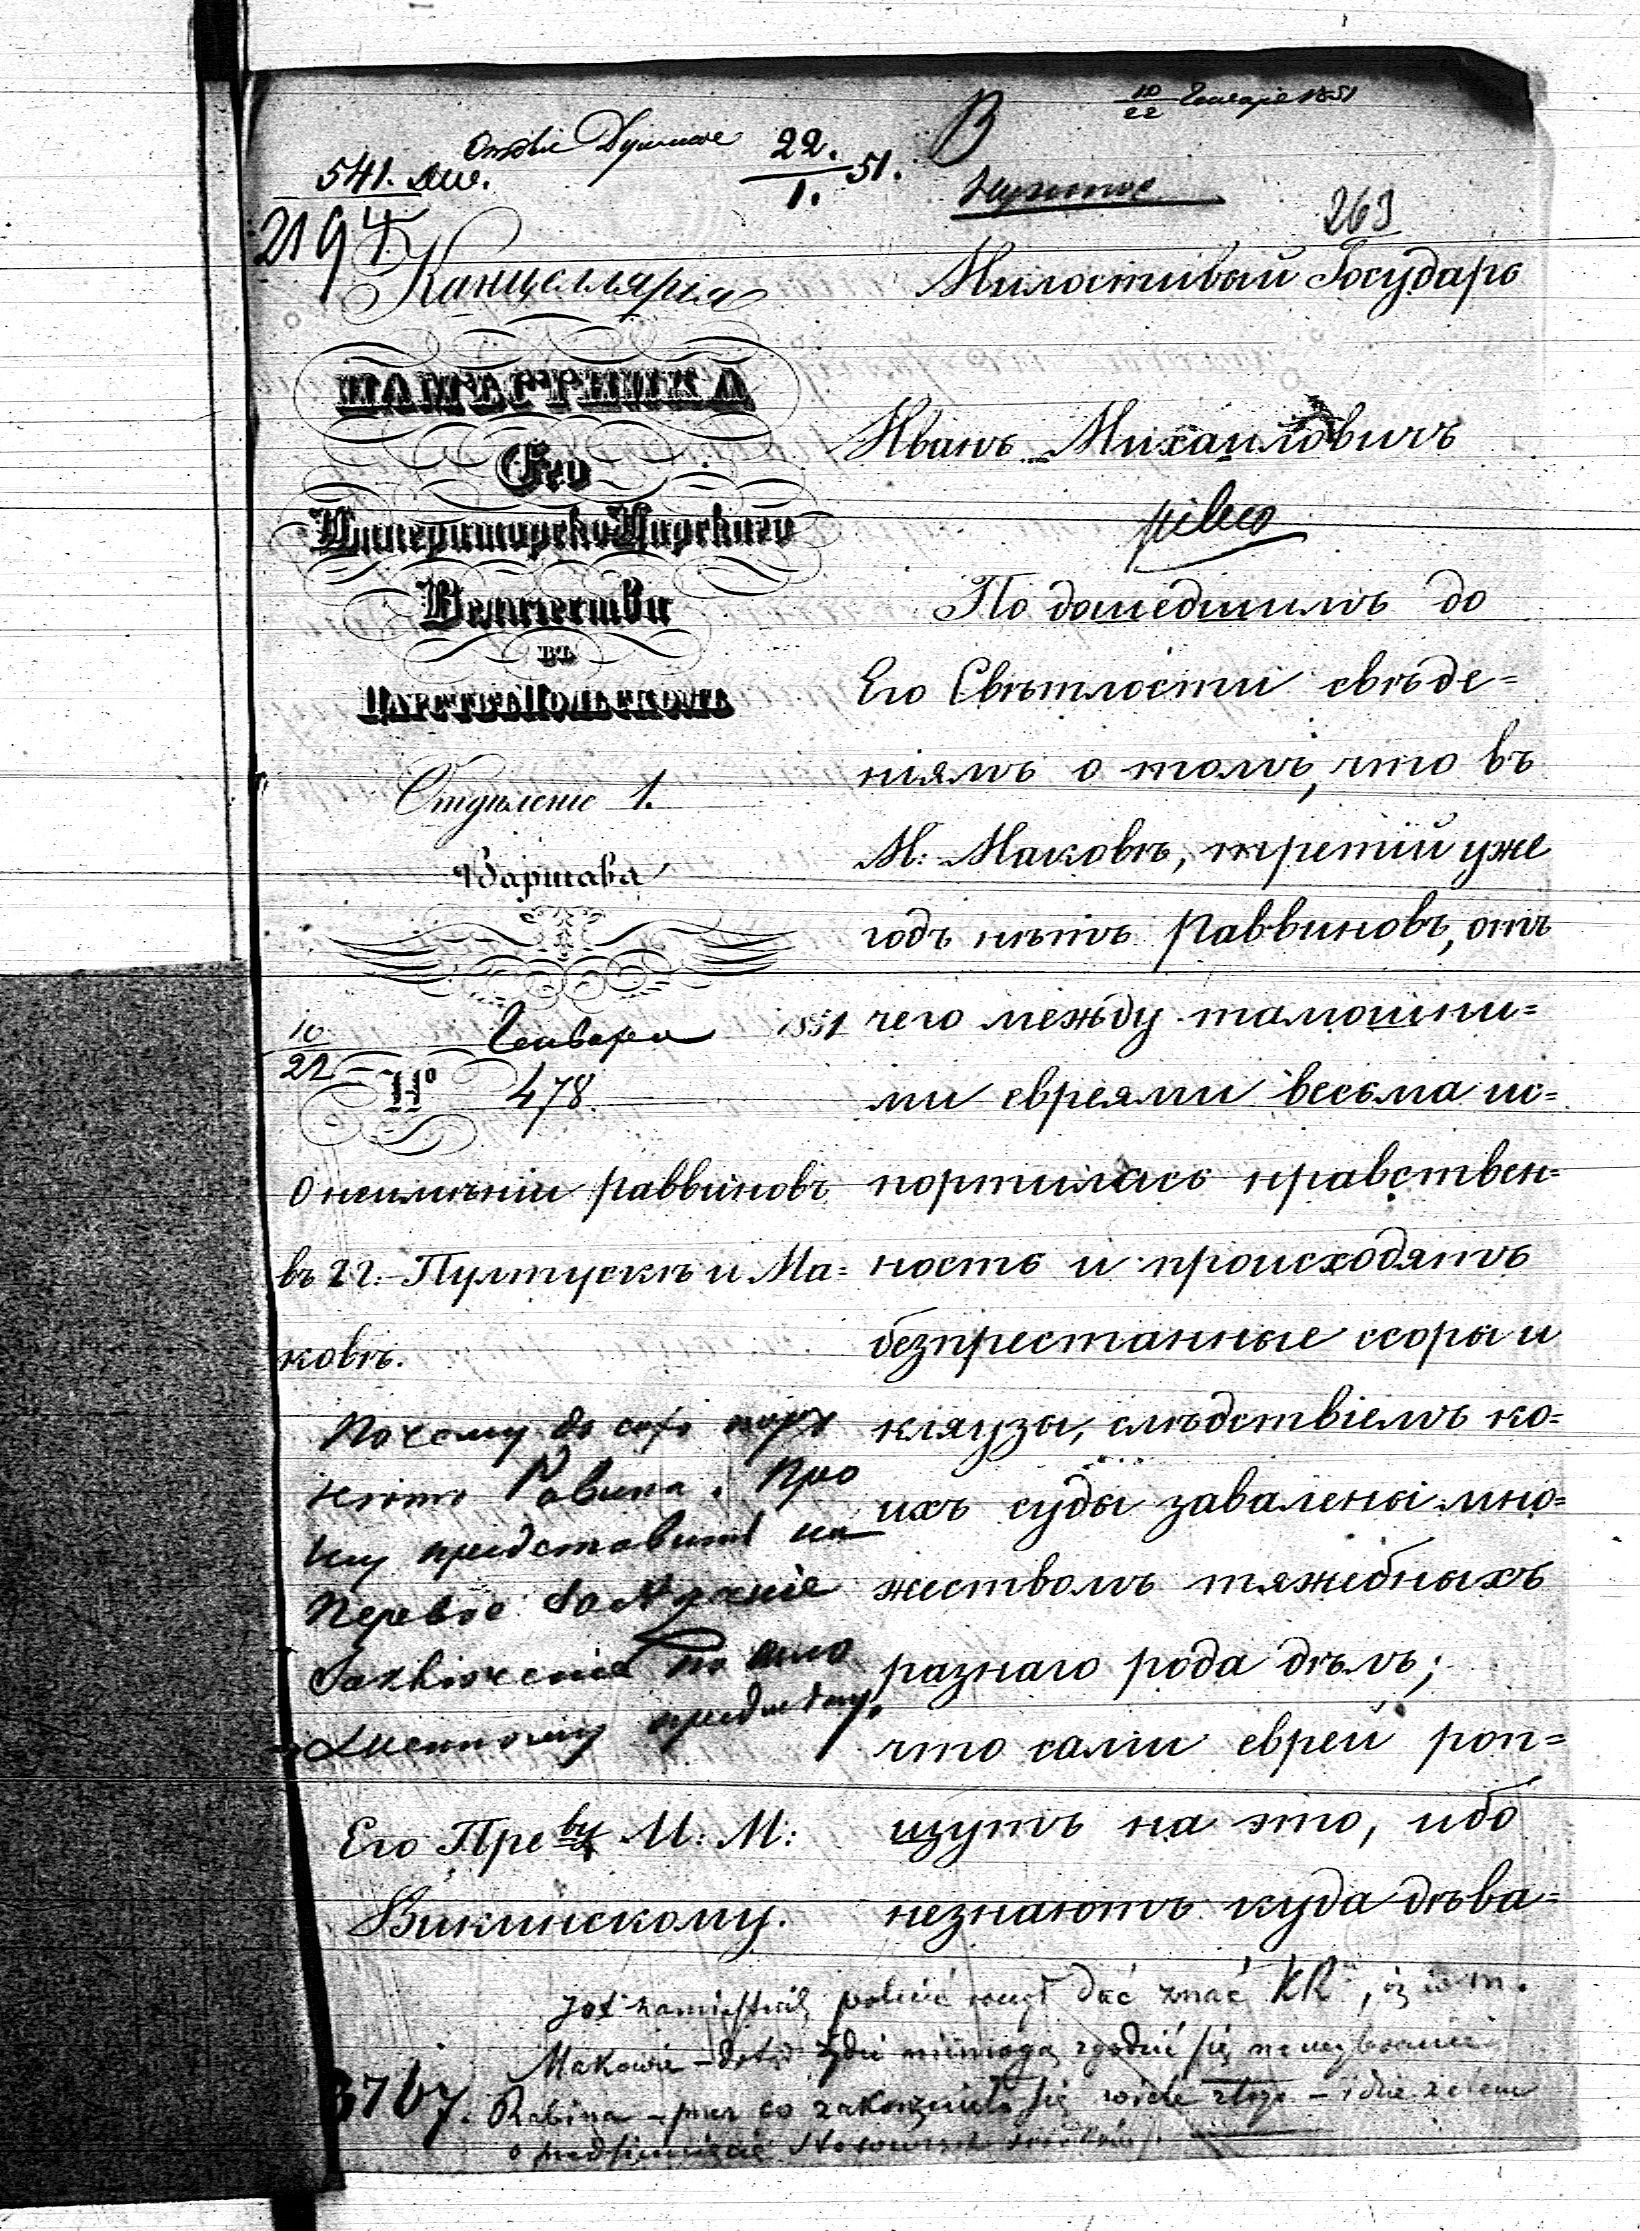 10/22 Генваря 1851
22./1. 51.
541. Дне.
2194
Нужное
263
Канцеллярія
НАМѢСТНИКА
Его
Императорско Царскаго
Величества
въ
ЦАРСТВѢ ПОЛЬСКОМЪ
Отдѣленіе 1.
Варшава
10/22 Генваря 1851
№ 478.
О неимѣніи раввиновъ
въ г.г. Пултускѣ и Ма=
ковѣ.
Почему до сихъ поръ
нѣтъ Равина. Про
шу представить на
первое
заключеніе по
предмету.
Его Прев-ву И: М:
Викинскому.
Милостивый Государь
Иванъ Михаиловичъ
По дошедшимъ до
Его Свѣтлости свѣде=
ніямъ о томъ, что въ
М: Маковѣ, третій уже
годъ нѣтъ Раввиновъ, отъ
чего между тамошни=
ми евреями весьма ис=
портилась нравствен=
ность и происходятъ
безпрестанные ссоры и
кляузы, слѣдствіемъ ко=
ихъ суды завалены мно=
жествомъ тяжебныхъ
разнаго рода дѣлъ;
что сами евреи роп=
щутъ на это, ибо
незнаютъ куда дѣва=
polecić dać znać KR, iż w m.
Makowie – dotąd żydzi niemogą zgodzić się na wybranie
Rabina – przez co zakorzeniło się wiele złego – i
o
3767.